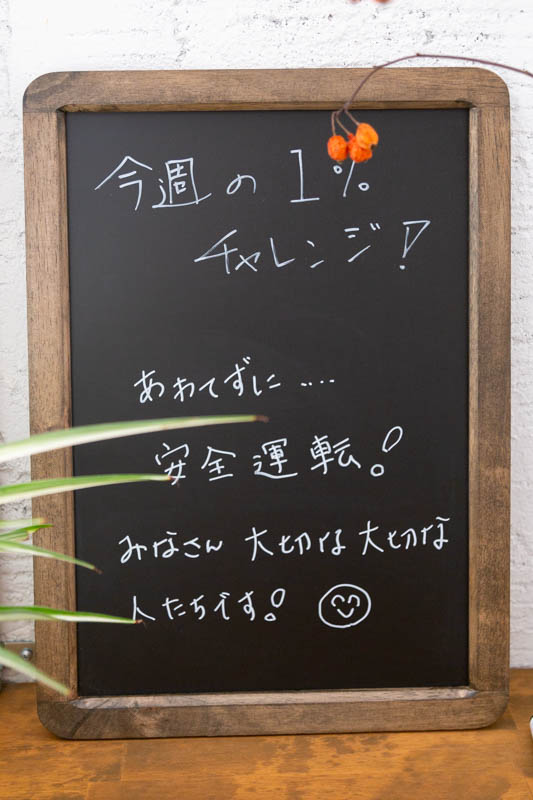 今週の1%
チャレンジ!
あわてずに....
安全運転!
みなさん 大切な大切な
人たちです!